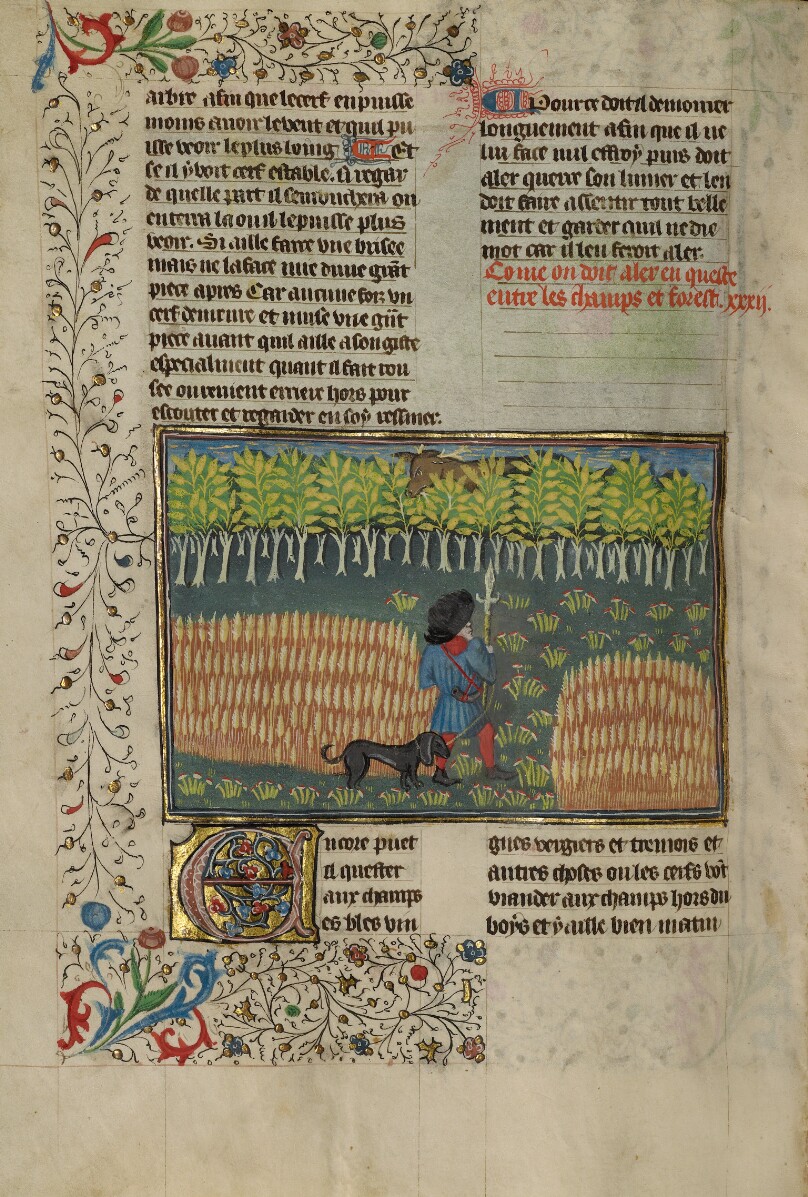 arbre afin que le cerf en puisse
moins auoir le vent et quil pu
isse veoir le plus loing Et
se il y voit cerf estable. si regar
de quelle part il sembuchera ou
enterra la ou il le puisse plus
veoir. Si aille faire vne brisee
mais ne la face mie dune grāt
piece apres Car aucune foiz vn
cerf demeure et muse vne grāt
piece auant quil aille a son giste
especialment quant il fait rou
see ou reuient erriere hors pour
escouter et regarder en soy ressuier.
Pour ce doit il demourer
longuement afin que il ne
lui face nul effroy puis doit
aler querre son limier et len
doit faire assentir tout belle
ment et garder quil ne die
mot car il len feroit aler.
Cōme on doit aler en queste
entre les champs et forest. xxxij.
Encore puet
il quester
aux champs
es bles vin
gnes vergiers et tremois et
autres choses ou les cerfs vōt
viander aux champs hors du
boys et y aille bien matin